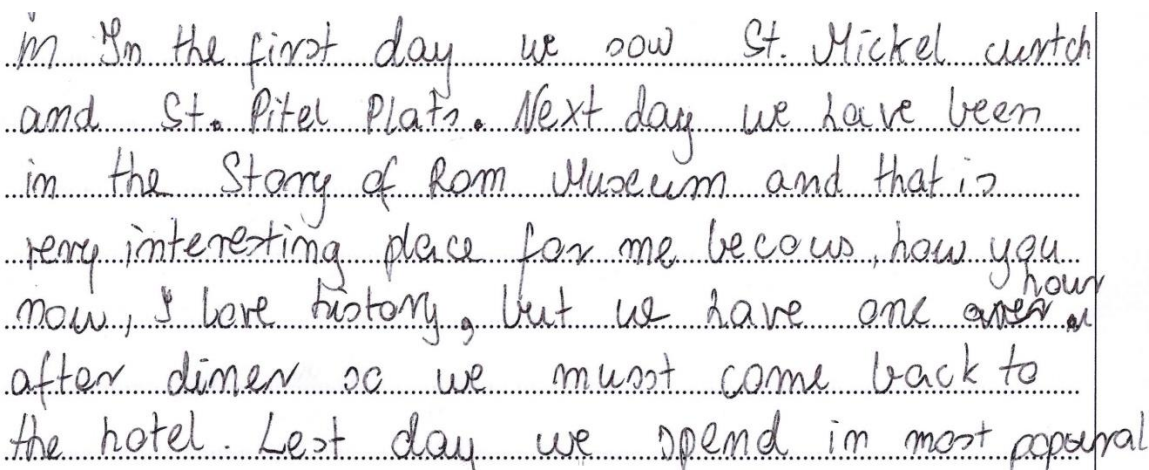 in In the first day we sow St. Mickel curtch
and St. Pitel Plats. Next day we have been
in the Story of Rom Museum and that is
very interesting place for me becous, how you
now, I love history, but we have one hour
after diner so we musst come back to
the hotel. Lest day we spend in most popural